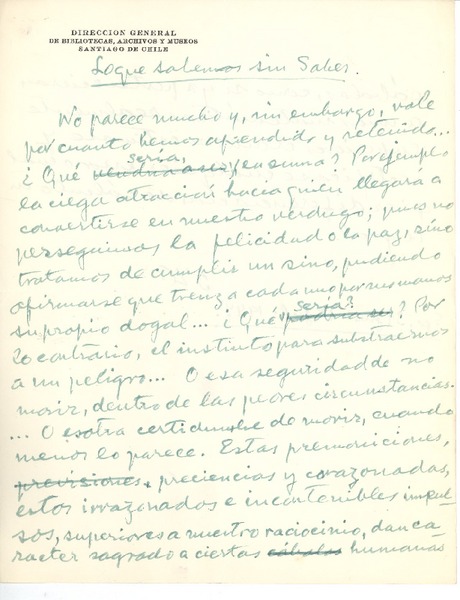 DIRECCION GENERAL
DE BIBLIOTECAS, ARCHIVOS Y MUSEOS
SANTIAGO DE CHILE
Lo que sabemos sin Saber.
No parece mucho y, sin embargo, vale
por cuanto hemos aprendido y retenido...
sería,
¿Qué en suma? Por ejemplo
la ciega atracción hacia quien llegará a
convertirse en nuestro verdugo; pues no
perseguimos la felicidad o la paz, sino
tratamos de cumplir un sino, pudiendo
afirmarse que trenza cada uno por sus manos
sería?
su propio dogal... ¿Qué podría ser? Por
lo contrario, el instinto para substraernos
a un peligro... O esa seguridad de no
morir, dentro de las peores circunstancias.
... O esotra certidumbre de morir, cuando
menos lo parece. Estas premoniciones,
previsiones, preciencias y corazonadas,
estos irrazonados e incontenibles impul-
sos, superiores a nuestro raciocinio, dan ca-
racter sagrado a ciertas cábalas humanas